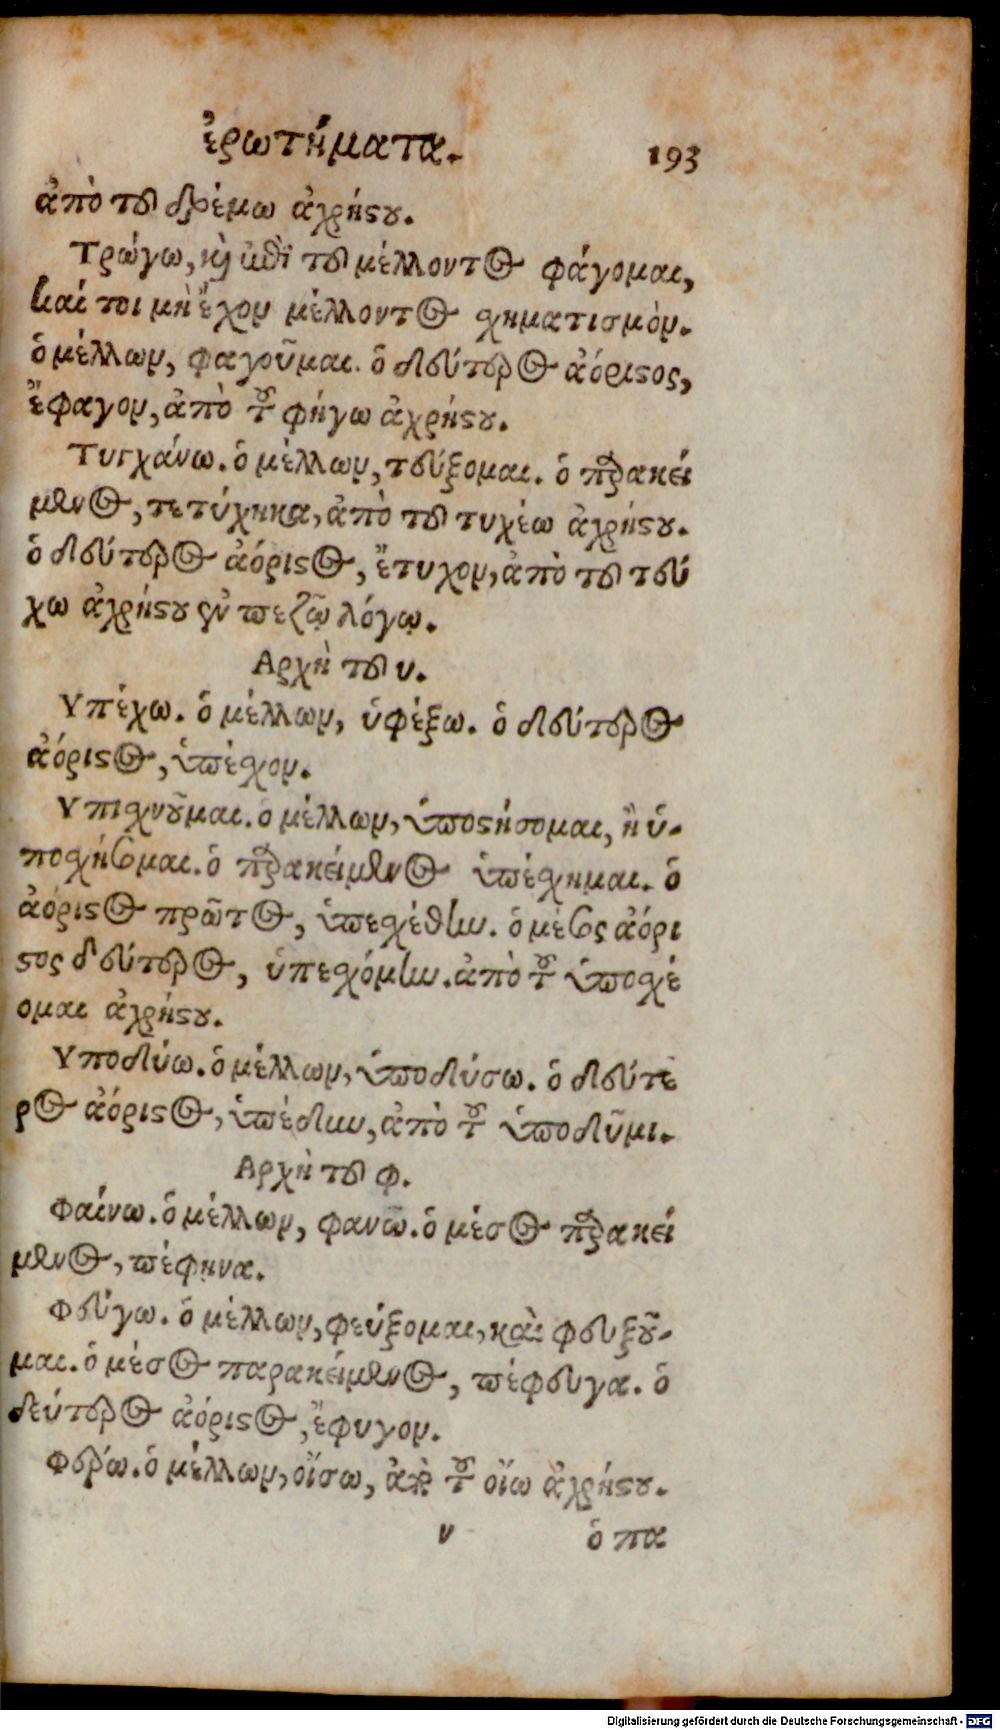 ἐρωτήματα. 193
ἀπὸ τοῦ δρέμω ἀχρήστου.
Τρώγω, καὶ ἀντὶ τοῦ μέλλοντος φάγομαι,
καί τοι μὴ ἔχον μέλλοντος σχηματισμὸν.
ὁ μέλλων, φαγοῦμαι. ὁ δεύτερος ἀόριστος,
ἔφαγον, ἀπὸ τοῦ φήγω ἀχρήστου.
Τυγχάνω. ὁ μέλλων, τεύξομαι. ὁ παρακεί
μενος, τετύχηκα, ἀπὸ τοῦ τυχέω ἀχρήστου.
ὁ δεύτερος ἀόριστος, ἔτυχον, ἀπὸ τοῦ τεύ
χω ἀχρήστου ἐν πεζῷ λόγῳ.
Αρχὴ τοῦ υ.
Υπέχω. ὁ μέλλων, ὑφέξω. ὁ δεύτερος
ἀόριστος, ὑπέσχον.
Υπισχνοῦμαι. ὁ μέλλων, ὑποστήσομαι, ἢ ὑ-
ποσχήσομαι. ὁ παρακείμενος ὑπέσχημαι. ὁ
ἀόριστος πρῶτος, ὑπεσχέθην. ὁ μέσος ἀόρι
στος δεύτερος, ὑπεσχόμην. ἀπὸ τοῦ ὑποσχέ
ομαι ἀχρήστου.
Υποδύω. ὁ μέλλων, ὑποδύσω. ὁ δεύτε
ρος ἀόριστος, ὑπέδυν, ἀπὸ τοῦ ὑποδῦμι.
Αρχὴ τοῦ φ.
Φαίνω. ὁ μέλλων, φανῶ. ὁ μέσος παρακεί
μενος, πέφηνα.
Φεύγω. ὁ μέλλων, φεύξομαι, καὶ φευξοῦ-
μαι. ὁ μέσος παρακείμενος, πέφευγα. ὁ
δεύτερος ἀόριστος, ἔφυγον.
Φέρω. ὁ μέλλων, οἴσω, ἀπὸ τοῦ οἴω ἀχρήστου.
ν ὁ πα
Digitalisierung gefördert durch die Deutsche Forschungsgemeinschaft - DFG